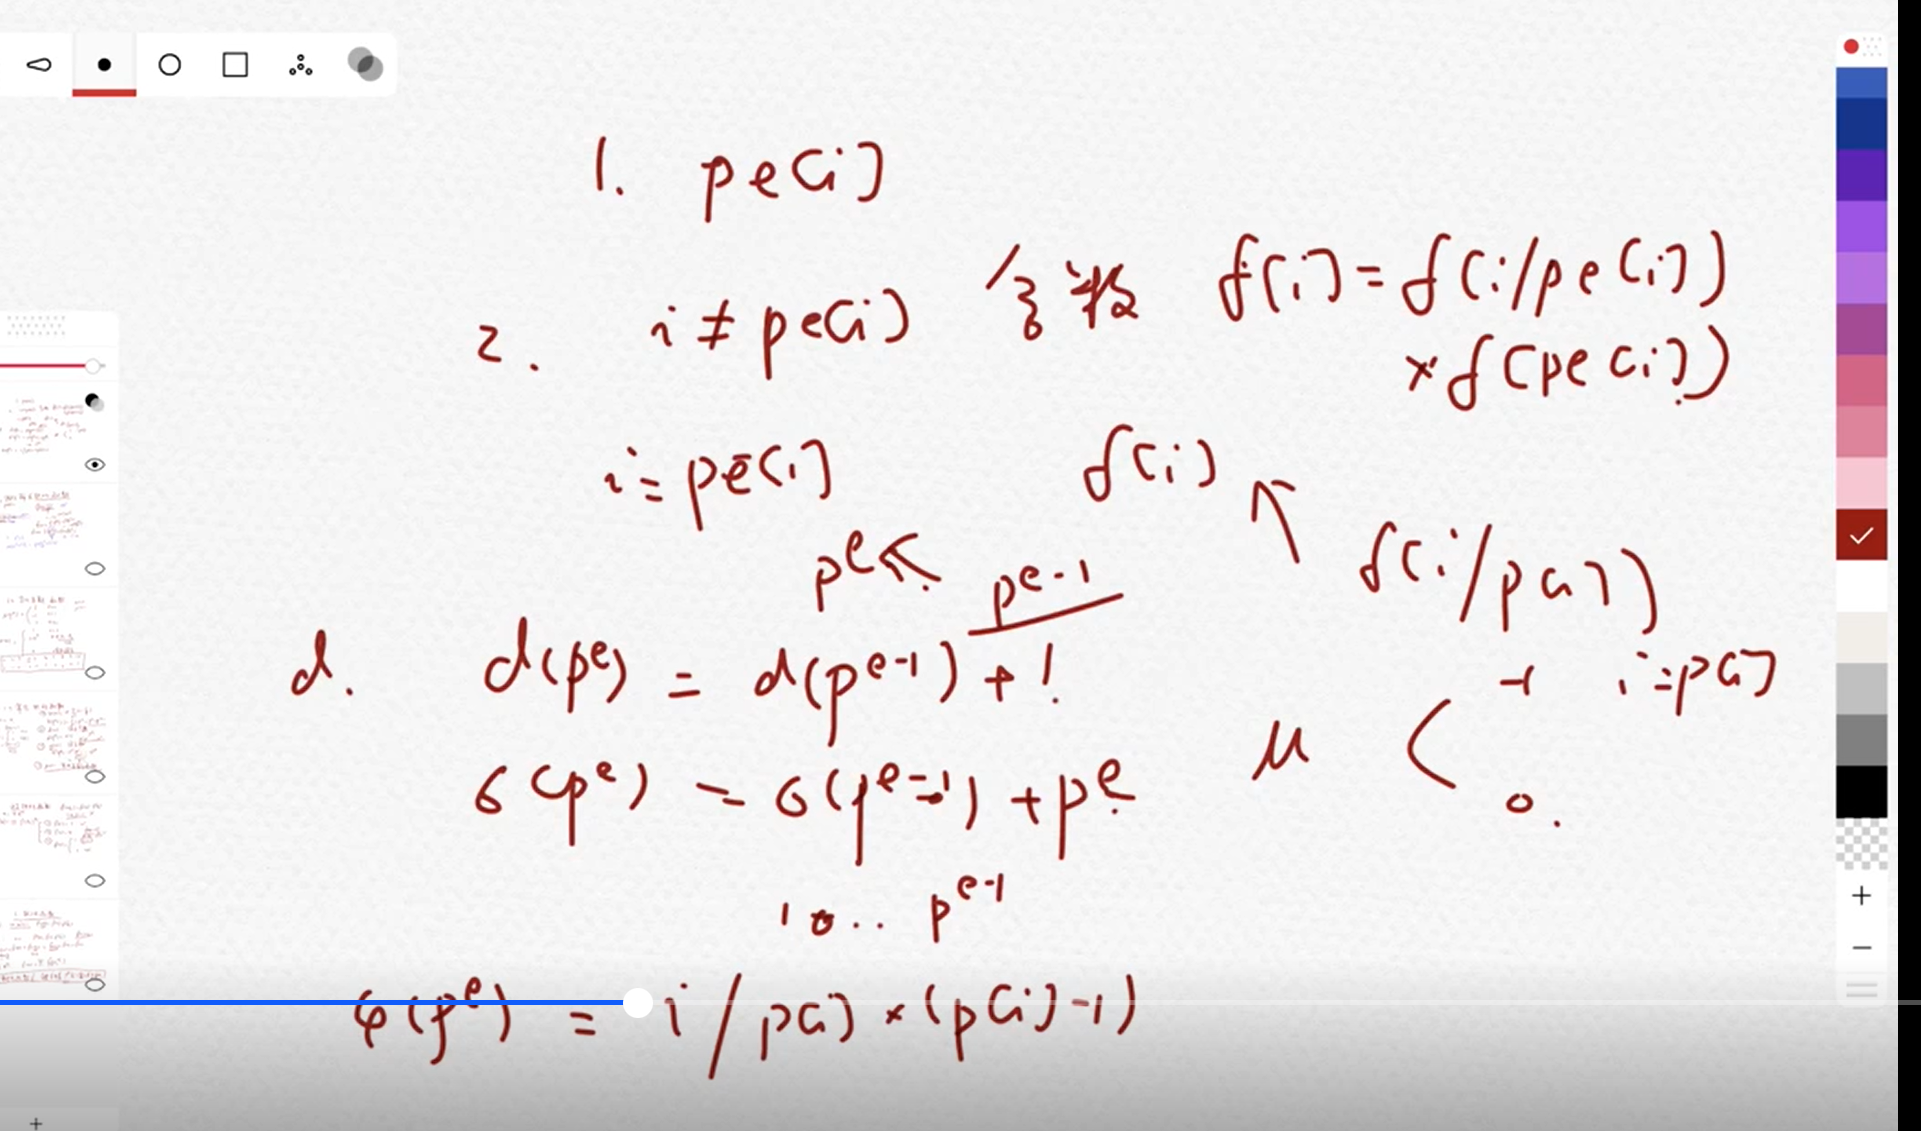 1. pe[i]
2. i ≠ pe[i] 合数 f[i] = f(i/pe[i])
× f(pe[i])
i = pe[i] f[i]
f(i/p[i])
p^e p^{e-1}
d. d(p^e) = d(p^{e-1}) + 1
μ -1 i=p[i]
0.
σ(p^e) = σ(p^{e-1}) + p^e
1 p .. p^{e-1}
φ(p^e) = i/p[i] × (p[i]-1)